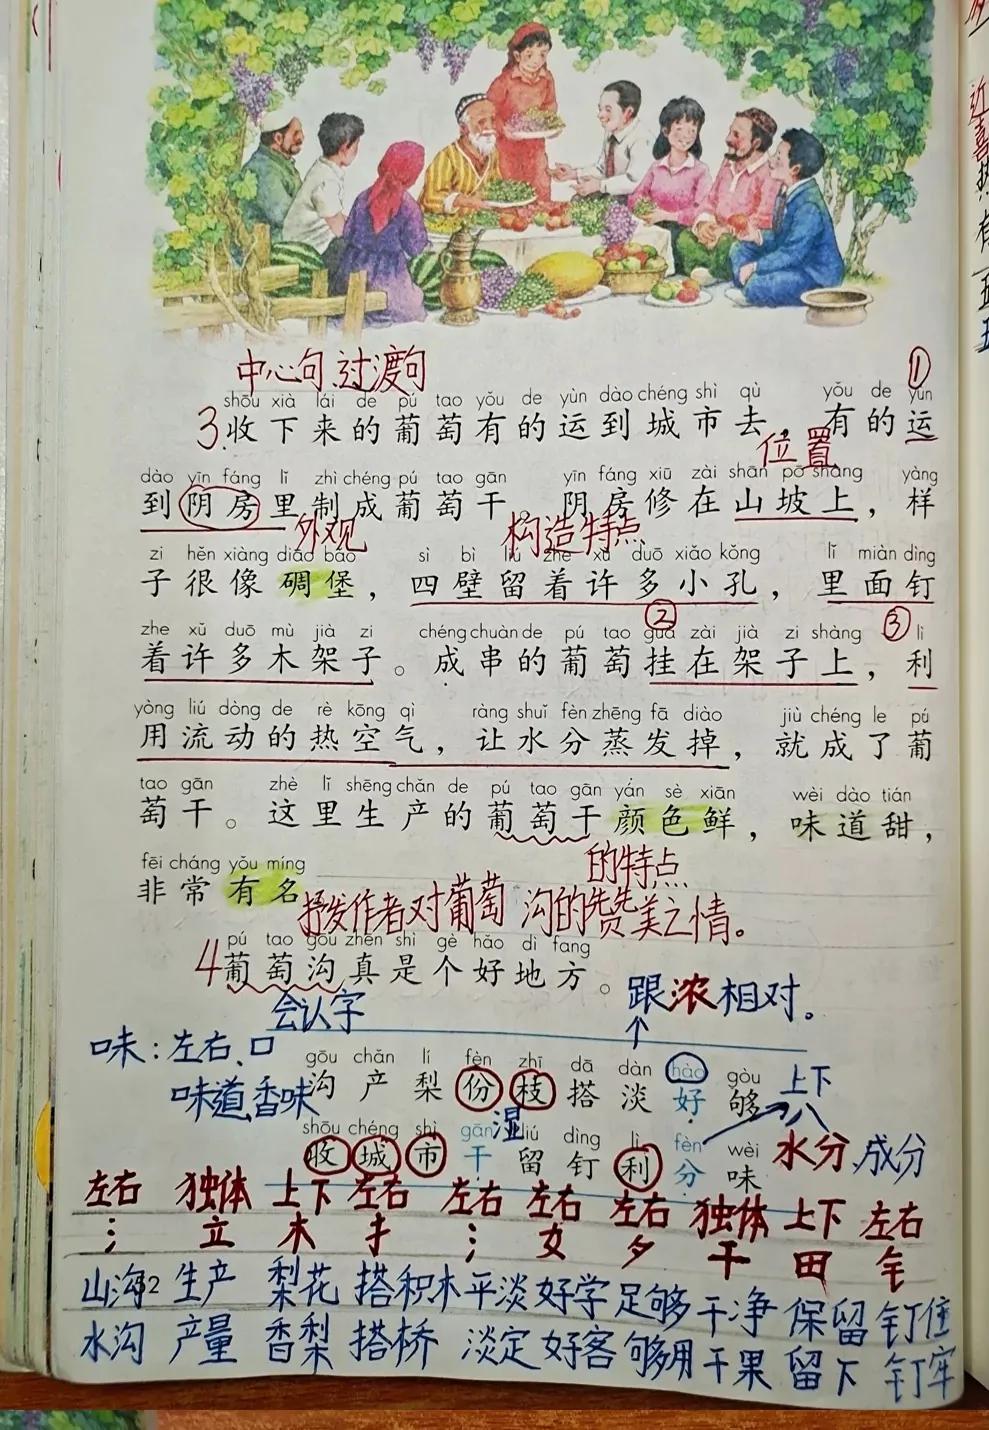 中心句、过渡句
①
shōu xià lái de pú tao yǒu de yùn dào chéng shì qù yǒu de yùn
3.收下来的葡萄有的运到城市去，有的运
位置
dào yīn fáng lǐ zhì chéng pú tao gān yīn fáng xiū zài shān pō shàng yàng
到阴房里制成葡萄干。阴房修在山坡上，样
外观 构造特点
zi hěn xiàng diāo bǎo sì bì liú zhe xǔ duō xiǎo kǒng lǐ miàn dìng
子很像碉堡，四壁留着许多小孔，里面钉
② ③
zhe xǔ duō mù jià zi chéng chuàn de pú tao guà zài jià zi shàng lì
着许多木架子。成串的葡萄挂在架子上，利
yòng liú dòng de rè kōng qì ràng shuǐ fèn zhēng fā diào jiù chéng le pú
用流动的热空气，让水分蒸发掉，就成了葡
tao gān zhè lǐ shēng chǎn de pú tao gān yán sè xiān wèi dào tián
萄干。这里生产的葡萄干颜色鲜，味道甜，
fēi cháng yǒu míng
非常有名
的特点
抒发作者对葡萄沟的赞美之情。
pú tao gōu zhēn shì gè hǎo dì fang
4葡萄沟真是个好地方。
会认字
跟浓相对。
味：左右、口
味道、香味
gōu chǎn lí fèn zhī dā dàn hào gòu
沟产梨份枝搭淡好够
上下
八
湿
shōu chéng shì gān liú dìng lì fèn wèi
收城市干留钉利分味
水分、成分
左右 独体 上下 左右 左右 左右 左右 独体 上下 左右
氵 立 木 扌 氵 女 夕 干 田 钅
山沟 生产 梨花 搭积木 平淡 好学 足够 干净 保留 钉住
2
水沟 产量 香梨 搭桥 淡定 好客 够用 干果 留下 钉牢